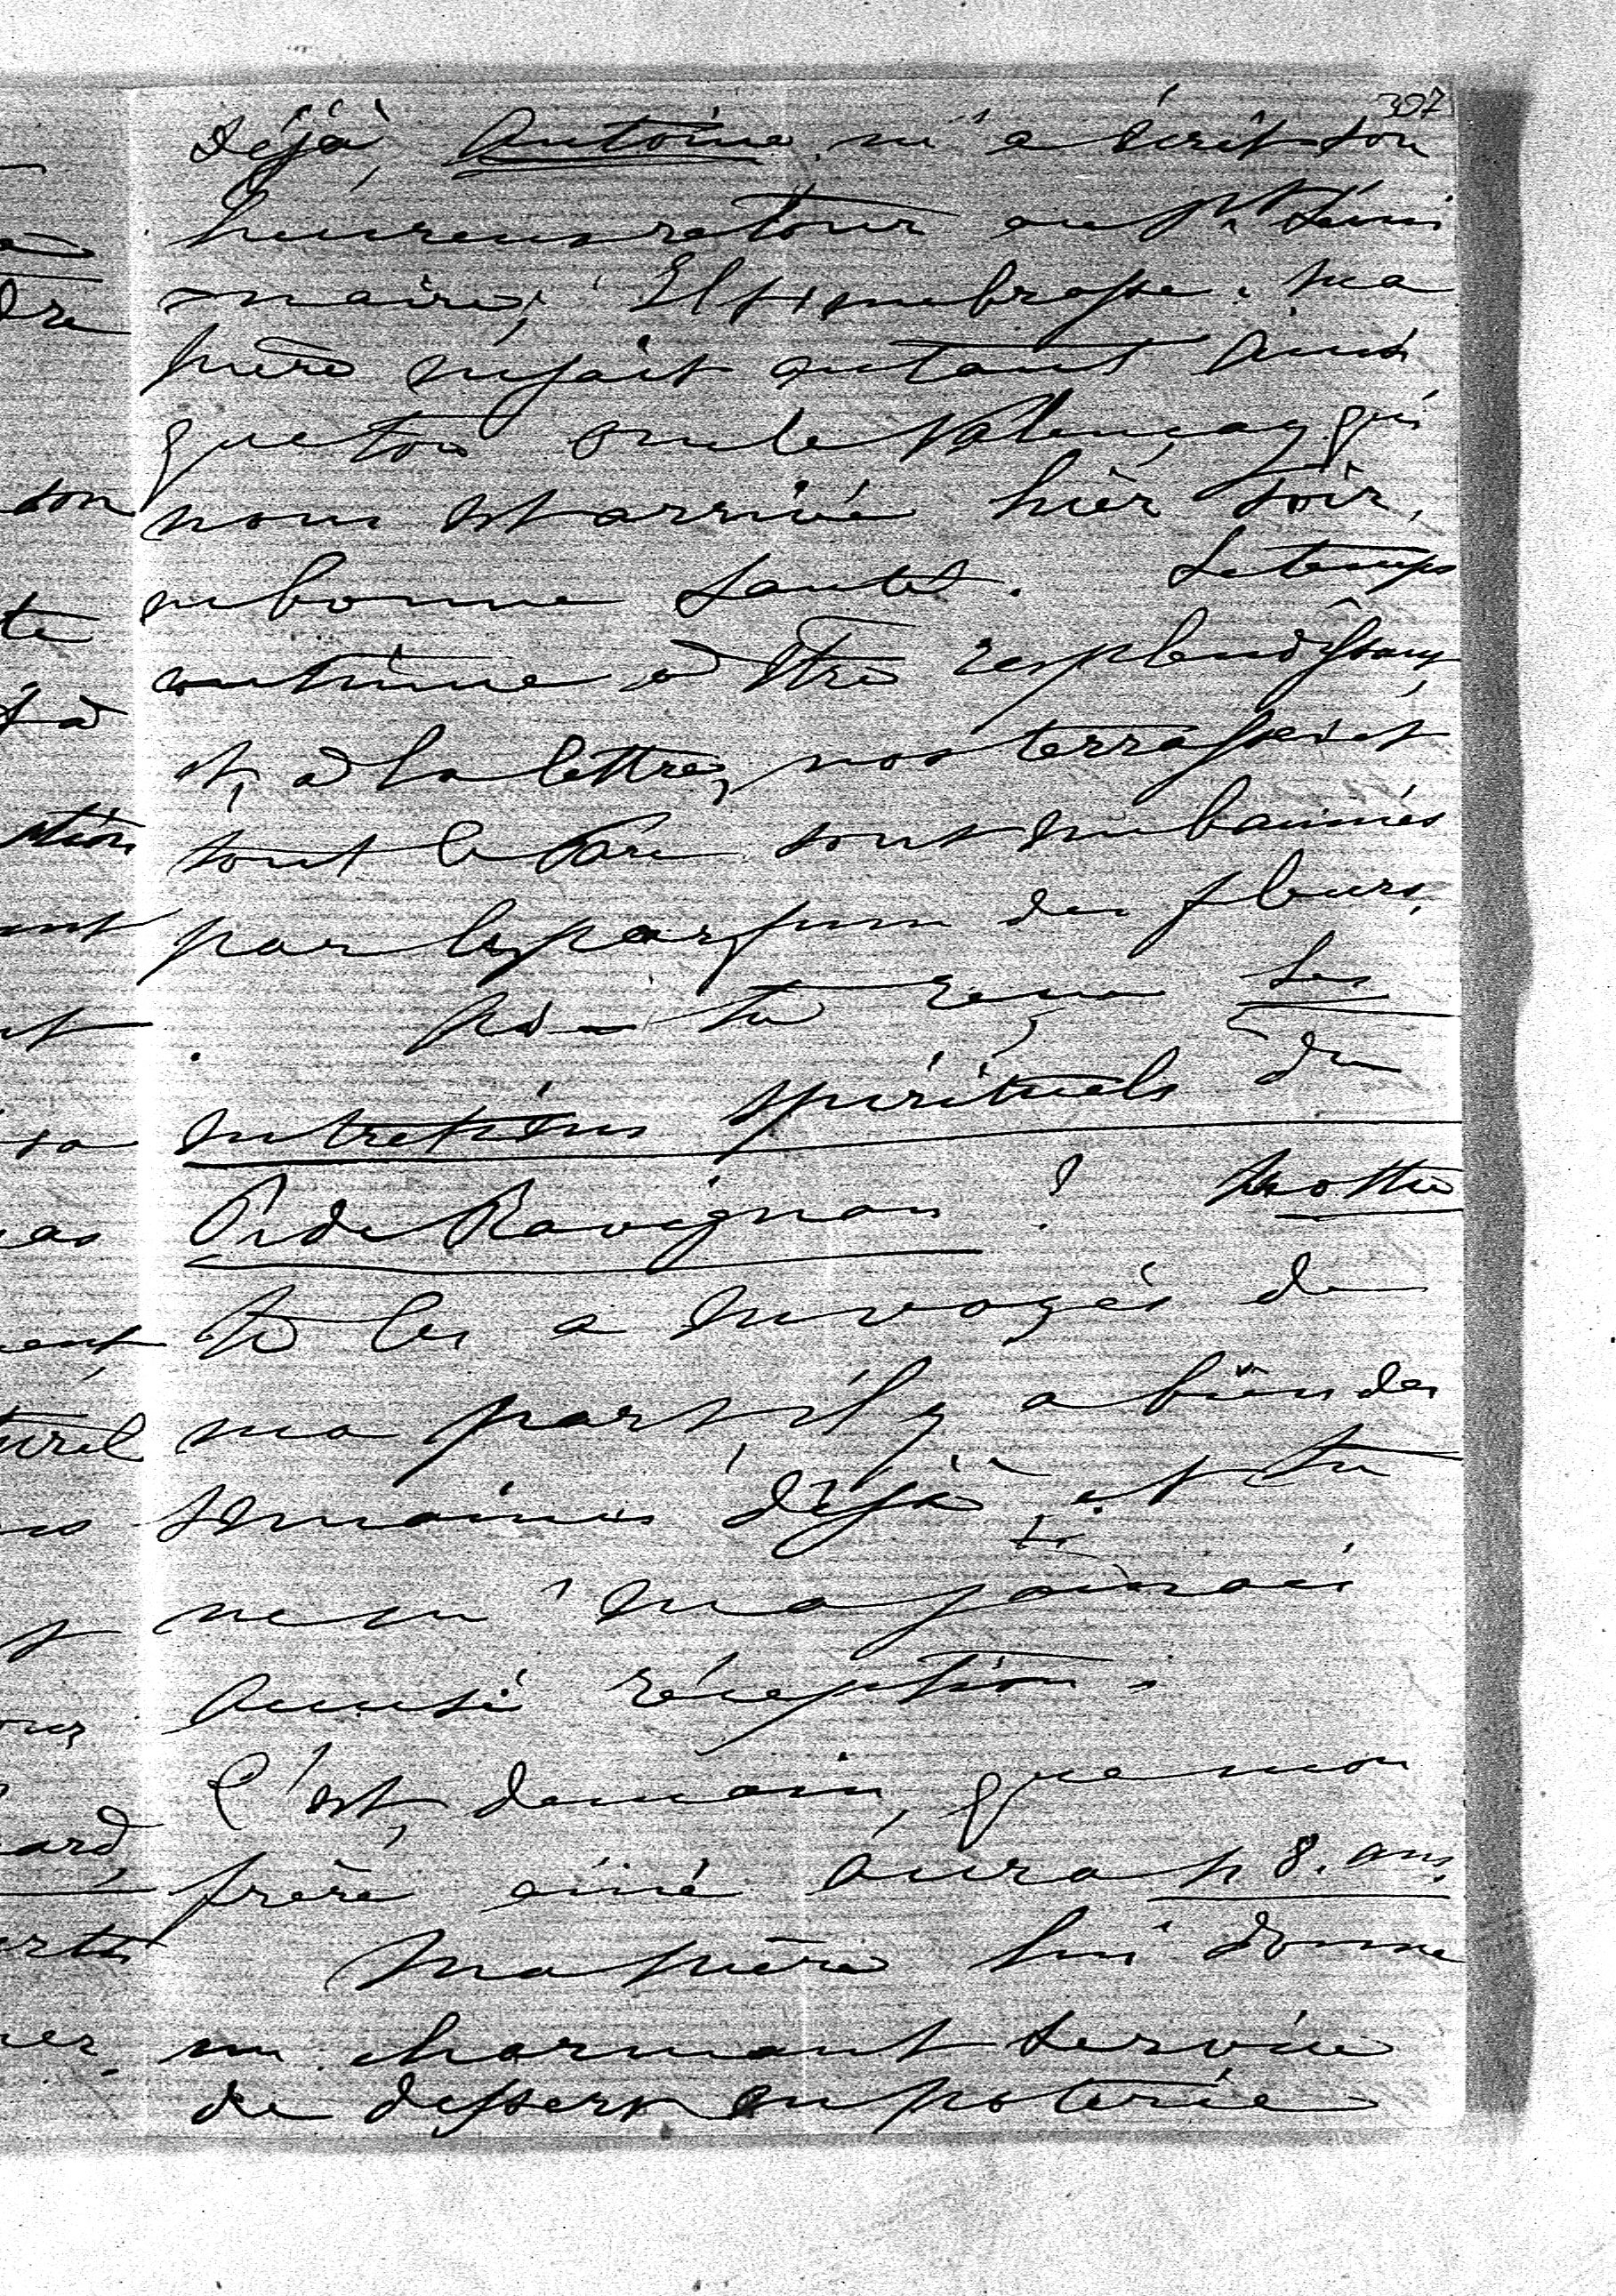 307
Déjà, Antoine m'a écrit son
heureux retour au pt. Sémi
naire; Il t'embrasse. Ma
mère en fait autant ainsi
que ton oncle Valençay qui
nous est arrivé hier soir,
en bonne santé. Le temps
continue à être resplendissant,
et, à la lettre, nos terrasses et
tout le Parc sont embaumés
par les parfums des fleurs.
As-tu reçu Les
entretiens spirituels du
P. de Ravignan ?
te les a envoyés de
ma part, il y a bien des
semaines déjà, et tu
ne m'en a jamais
accusé réception.
C'est, demain, que mon
frère aîné aura 48. ans.
Ma mère lui donne
un charmant service
de dessert en poterie
dre
son
te
à
ation
ant
pas
ment
turel
ard,